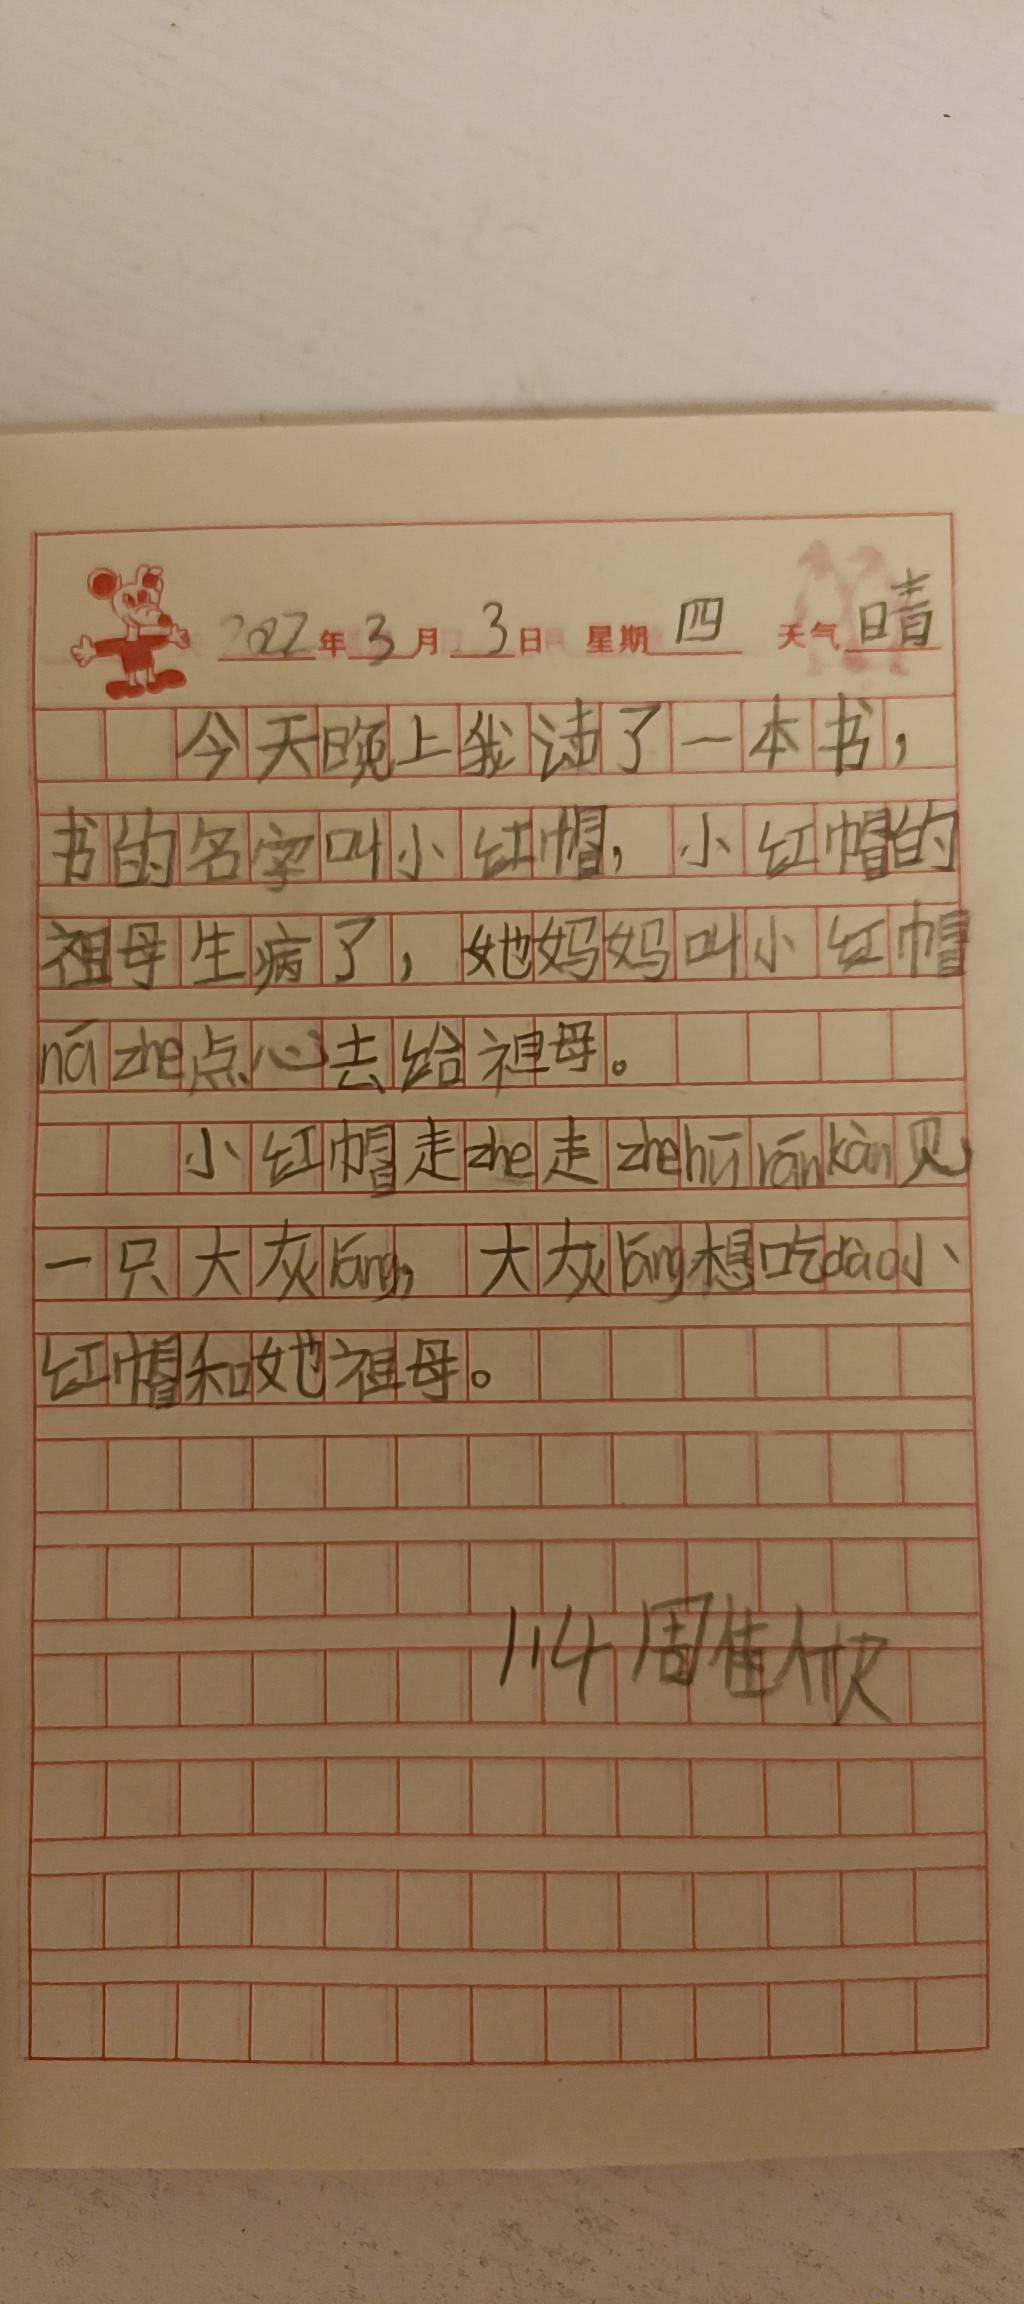 2022年3月3日 星期四 天气晴
今天晚上我读了一本书，
书的名字叫小红帽，小红帽的
祖母生病了，她妈妈叫小红帽
ná zhe点心去给祖母。
小红帽走zhe走zhehū ránkàn见
一只大灰láng，大灰láng想吃dào小
红帽和她祖母。
114周佳欣